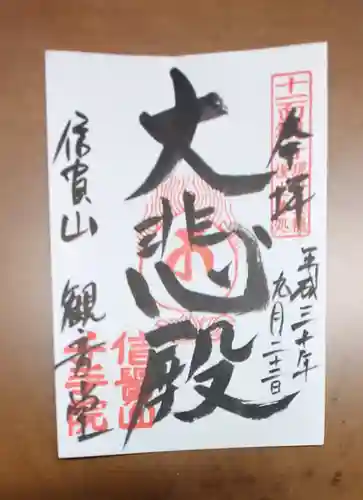 奉拝
平成三十年
九月二十二日
大悲殿
信貴山
観音堂
十一面
信貴山
千手院